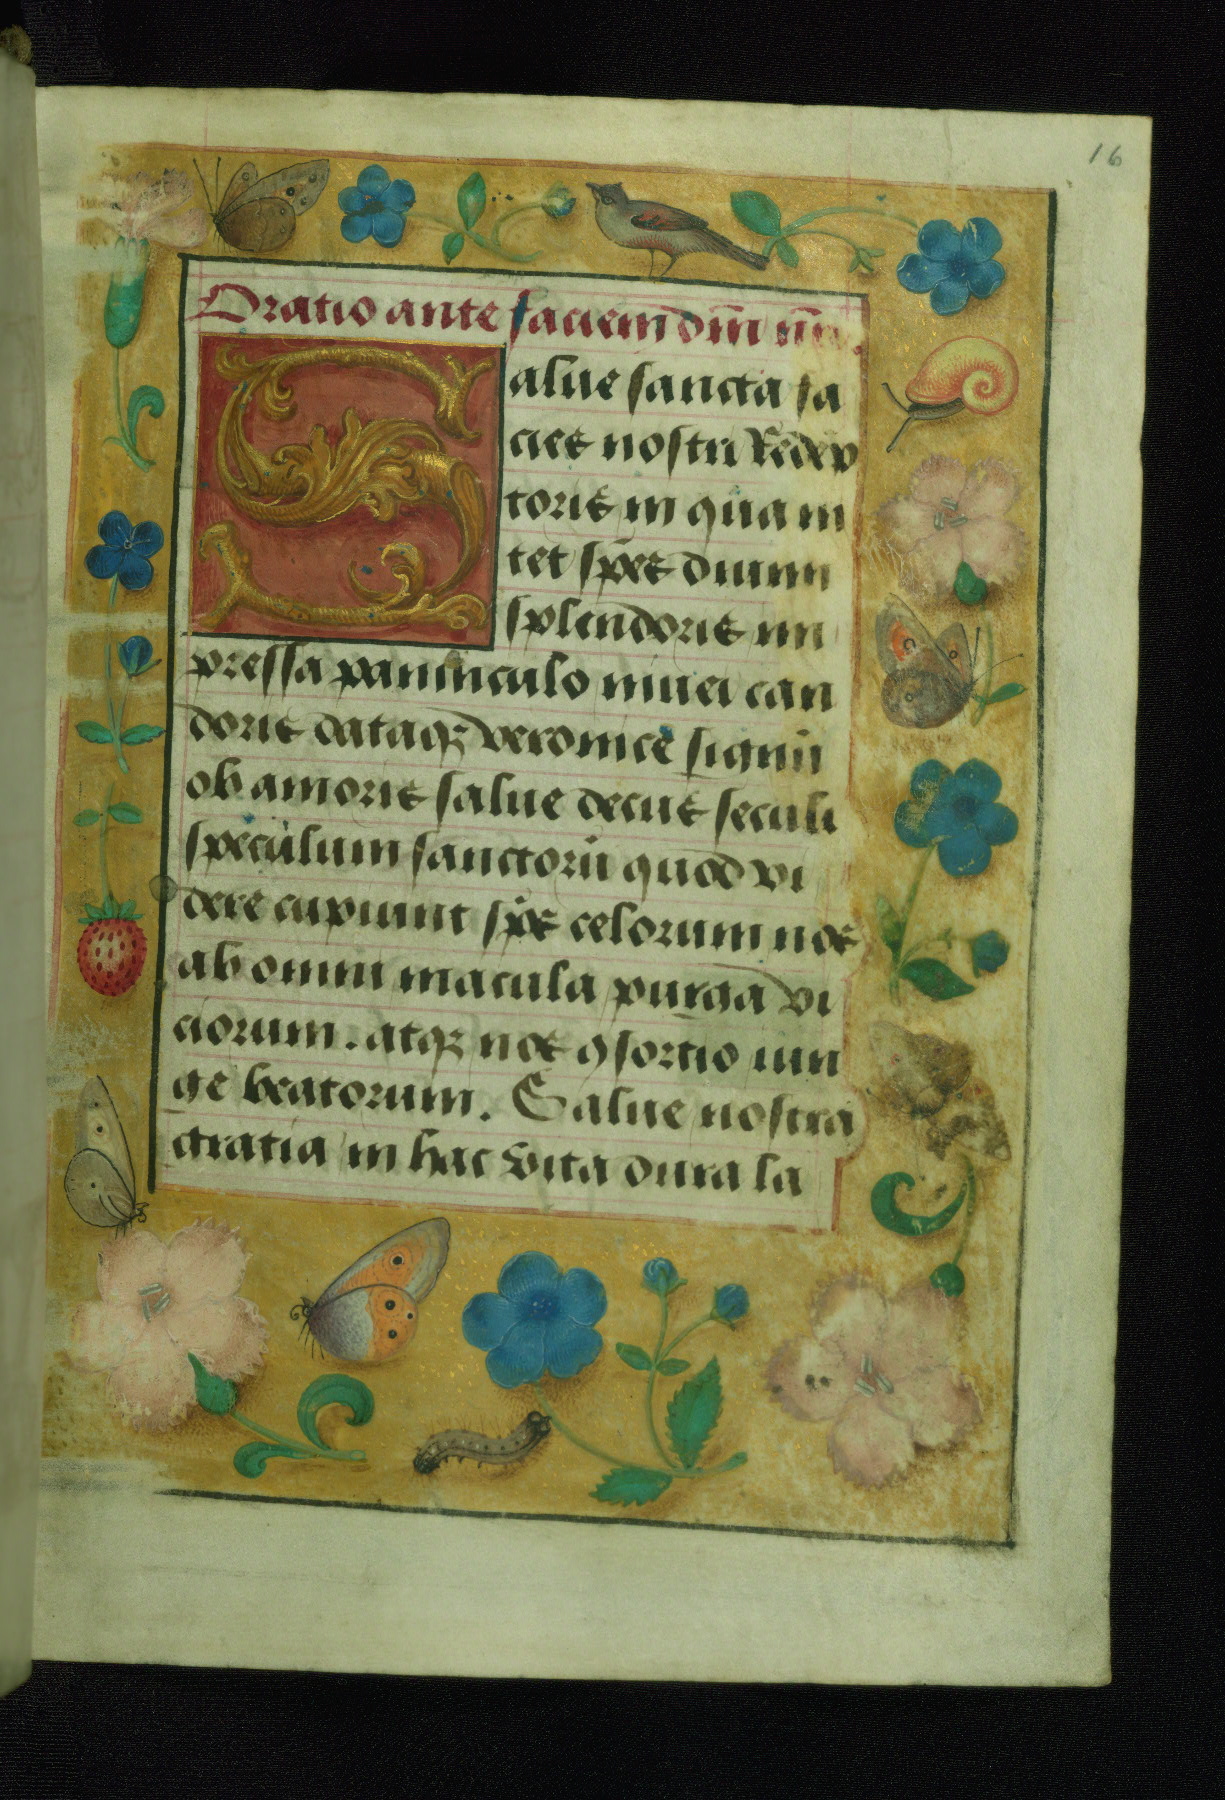 16
Oratio ante faciem dñi nr̃i.
Salue sancta fa
cies nostri Redẽp
toris in qua ni
tet spẽs diuini
splendoris im
pressa panniculo niuei can
doris dataqz veronice signũ
ob amoris salue decus seculi
speculum sanctorũ quod vi
dere cupiunt sp̃s celorum nos
ab omni macula purga vi
ciorum. atqz nos ꝯsortio iun
ge beatorum. Salue nostra
gratia in hac vita dura la